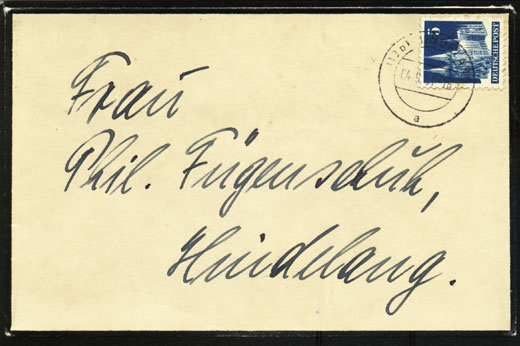 Frau
Phil. Fügenschuh,
Hindelang.
5
DEUTSCHE POST
a